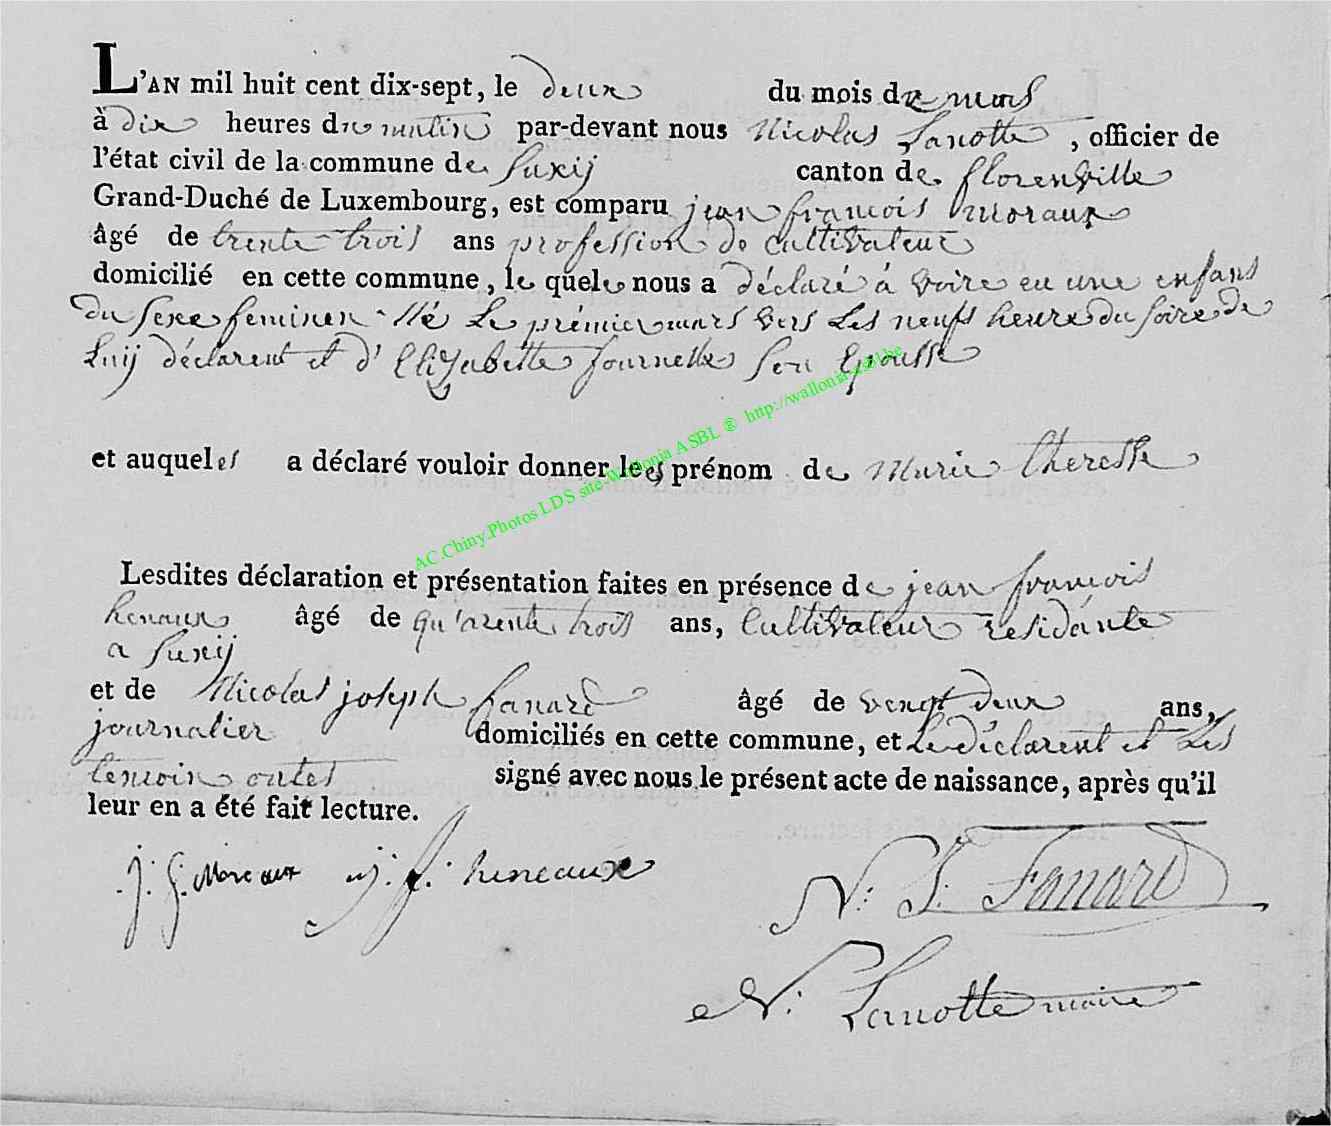 L'AN mil huit cent dix-sept, le deux du mois de mars
à dix heures du matin par-devant nous Nicolas Lanotte, officier de
l'état civil de la commune de Suxij canton de florenville
Grand-Duché de Luxembourg, est comparu jean françois moraux
âgé de trente trois ans profession de cultivateur
domicilié en cette commune, le quele nous a déclaré à voire eu une enfans
du sexe feminen Né Le prémier mars vers Les neufs heure du soire de
Luij déclarent et d'Elizabette fournelle son Epousse
et auqueles a déclaré vouloir donner les prénom de Marie theresse
AC.Chiny.Photos LDS site-Wallonia ASBL ® http://wallonia.asbl.be
Lesdites déclaration et présentation faites en présence de jean françois
henaux âgé de qu'arente trois ans, Cultivateur residante
a Suxij
et de Nicolas joseph fanard âgé de vengt deux ans,
journalier domiciliés en cette commune, et Le déclarent et Les
temoin ontes signé avec nous le présent acte de naissance, après qu'il
leur en a été fait lecture.
j: f. Moreaux j. f. heneaux
N: J: Fanard
N: Lanotte maire